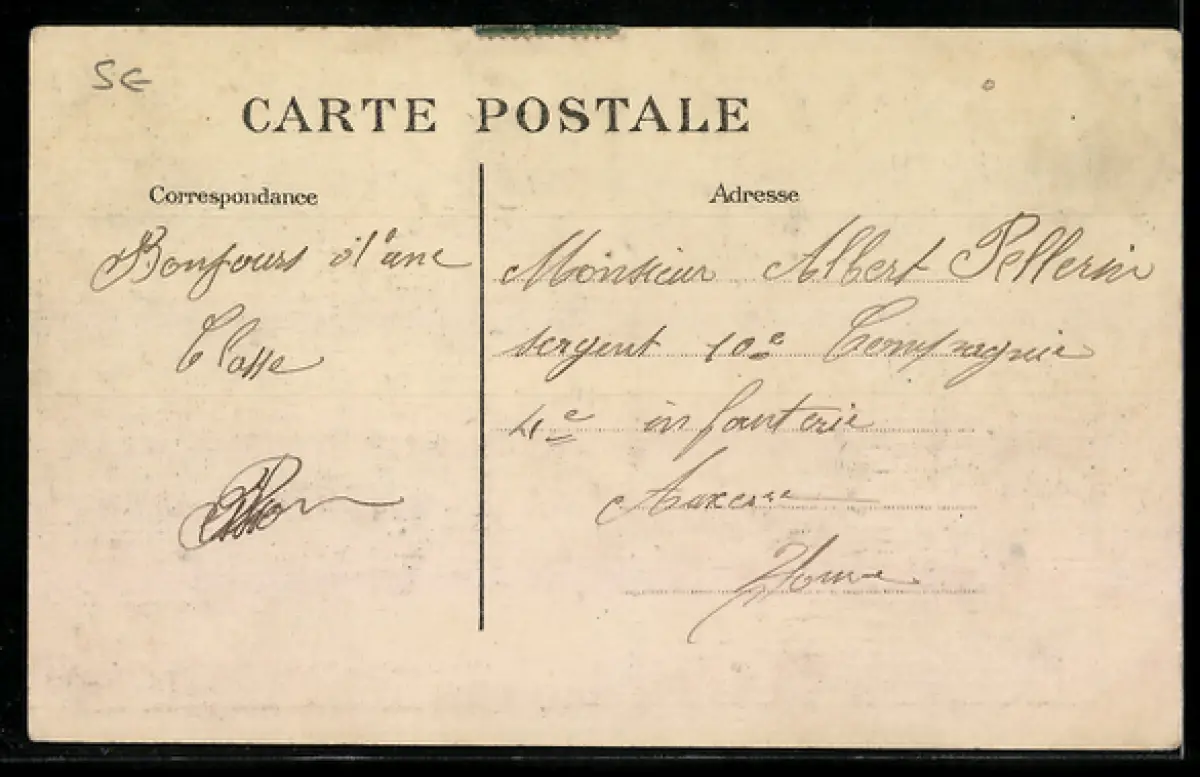 5€
CARTE POSTALE
Correspondance
Bonjours d'une
Classe
Adresse
Monsieur Albert Pellerin
sergent 10e Compagnie
4e infanterie
Auxerre
Yonne